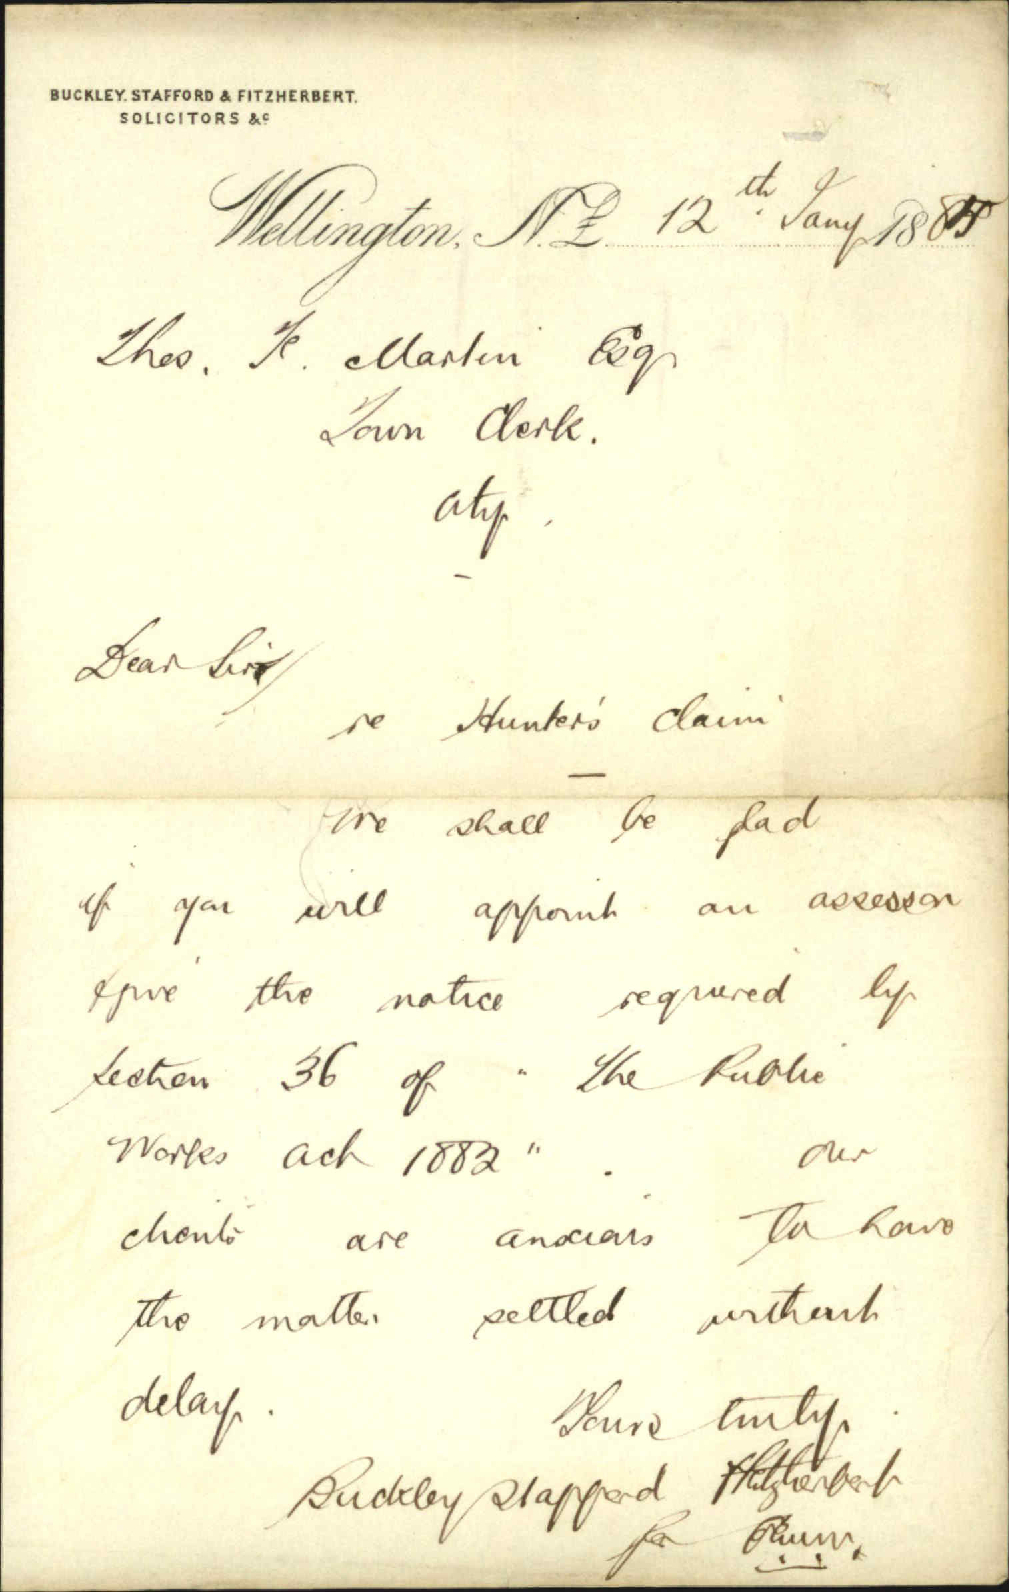 BUCKLEY. STAFFORD & FITZHERBERT.
SOLICITORS &c
Wellington, N.Z. 12th Jany 1885
Thos. F. Martin Esqr
Town Clerk.
City.
Dear Sir/
re Hunter's claim
We shall be glad
if you will appoint an assessor
& give the notice required by
Section 36 of "The Public
Works Act 1882". Our
clients are anxious to have
the matter settled without
delay.
Yours truly.
Buckley Stafford & Fitzherbert
for